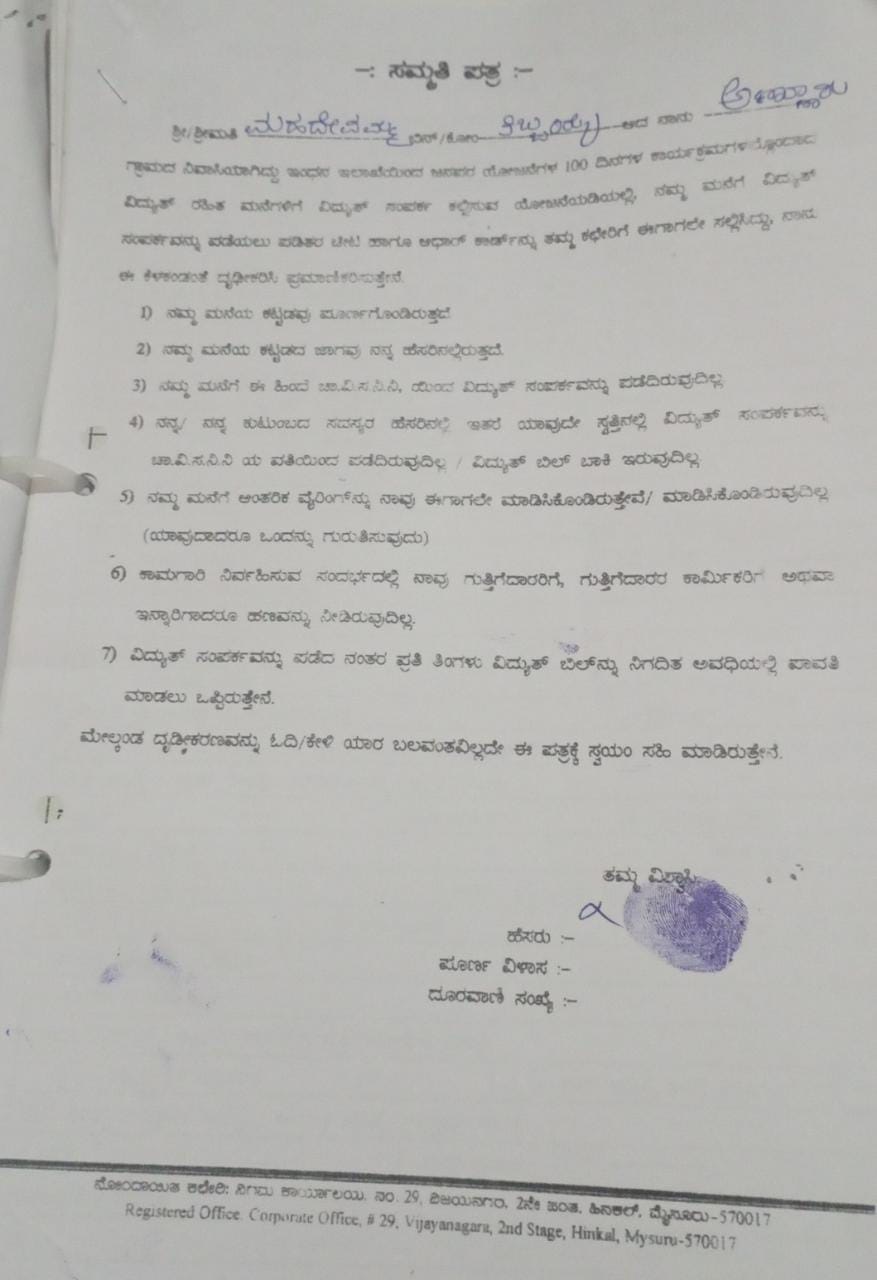 -: ಸಮ್ಮತಿ ಪತ್ರ :-
ಶ್ರೀ/ಶ್ರೀಮತಿ ಮಹದೇವಮ್ಮ ಬಿನ್/ಕೋಂ ಆದ ನಾನು
ಗ್ರಾಮದ ನಿವಾಸಿಯಾಗಿದ್ದು ಇಂಧನ ಇಲಾಖೆಯಿಂದ ಜನಪರ ಯೋಜನೆಗಳ 100 ದಿನಗಳ ಕಾರ್ಯಕ್ರಮಗಳನ್ನೊಂದಾದ
ವಿದ್ಯುತ್ ರಹಿತ ಮನೆಗಳಿಗೆ ವಿದ್ಯುತ್ ಸಂಪರ್ಕ ಕಲ್ಪಿಸುವ ಯೋಜನೆಯಡಿಯಲ್ಲಿ, ನಮ್ಮ ಮನೆಗೆ ವಿದ್ಯುತ್
ಸಂಪರ್ಕವನ್ನು ಪಡೆಯಲು ಪಡಿತರ ಚೀಟಿ ಹಾಗೂ ಆಧಾರ್ ಕಾರ್ಡ್‌ನ್ನು ತಮ್ಮ ಕಛೇರಿಗೆ ಈಗಾಗಲೇ ಸಲ್ಲಿಸಿದ್ದು, ನಾನು
ಈ ಕೆಳಕಂಡಂತೆ ದೃಢೀಕರಿಸಿ ಪ್ರಮಾಣಿಕರಿಸುತ್ತೇನೆ.
1) ನಮ್ಮ ಮನೆಯ ಕಟ್ಟಡವು ಪೂರ್ಣಗೊಂಡಿರುತ್ತದೆ
2) ನಮ್ಮ ಮನೆಯ ಕಟ್ಟಡದ ಜಾಗವು ನನ್ನ ಹೆಸರಿನಲ್ಲಿರುತ್ತದೆ.
3) ನಮ್ಮ ಮನೆಗೆ ಈ ಹಿಂದೆ ಚಾ.ವಿ.ಸ.ನಿ.ನಿ, ಯಿಂದ ವಿದ್ಯುತ್ ಸಂಪರ್ಕವನ್ನು ಪಡೆದಿರುವುದಿಲ್ಲ
4) ನನ್ನ/ ನನ್ನ ಕುಟುಂಬದ ಸದಸ್ಯರ ಹೆಸರಿನಲ್ಲಿ ಇತರೆ ಯಾವುದೇ ಸ್ವತ್ತಿನಲ್ಲಿ ವಿದ್ಯುತ್ ಸಂಪರ್ಕವನ್ನು
ಚಾ.ವಿ.ಸ.ನಿ.ನಿ ಯ ವತಿಯಿಂದ ಪಡೆದಿರುವುದಿಲ್ಲ / ವಿದ್ಯುತ್ ಬಿಲ್ ಬಾಕಿ ಇರುವುದಿಲ್ಲ
5) ನಮ್ಮ ಮನೆಗೆ ಆಂತರಿಕ ವೈರಿಂಗ್‌ನ್ನು ನಾವು ಈಗಾಗಲೇ ಮಾಡಿಸಿಕೊಂಡಿರುತ್ತೇವೆ/ ಮಾಡಿಸಿಕೊಂಡಿರುವುದಿಲ್ಲ
(ಯಾವುದಾದರೂ ಒಂದನ್ನು ಗುರುತಿಸುವುದು)
6) ಕಾಮಗಾರಿ ನಿರ್ವಹಿಸುವ ಸಂದರ್ಭದಲ್ಲಿ ನಾವು ಗುತ್ತಿಗೆದಾರರಿಗೆ, ಗುತ್ತಿಗೆದಾರರ ಕಾರ್ಮಿಕರಿಗೆ ಅಥವಾ
ಇನ್ನಾರಿಗಾದರೂ ಹಣವನ್ನು ನೀಡಿರುವುದಿಲ್ಲ.
7) ವಿದ್ಯುತ್ ಸಂಪರ್ಕವನ್ನು ಪಡೆದ ನಂತರ ಪ್ರತಿ ತಿಂಗಳು ವಿದ್ಯುತ್ ಬಿಲ್‌ನ್ನು ನಿಗದಿತ ಅವಧಿಯಲ್ಲಿ ಪಾವತಿ
ಮಾಡಲು ಒಪ್ಪಿರುತ್ತೇನೆ.
ಮೇಲ್ಕಂಡ ದೃಡ್ಢೀಕರಣವನ್ನು ಓದಿ/ಕೇಳಿ ಯಾರ ಬಲವಂತವಿಲ್ಲದೇ ಈ ಪತ್ರಕ್ಕೆ ಸ್ವಯಂ ಸಹಿ ಮಾಡಿರುತ್ತೇನೆ.
ತಮ್ಮ ವಿಶ್ವಾಸಿ
ಹೆಸರು :-
ಪೂರ್ಣ ವಿಳಾಸ :-
ದೂರವಾಣಿ ಸಂಖ್ಯೆ :-
ನೋಂದಾಯಿತ ಕಛೇರಿ: ನಿಗಮ ಕಾರ್ಯಾಲಯ, ನಂ. 29, ವಿಜಯನಗರ, 2ನೇ ಹಂತ, ಹಿನಕಲ್, ಮೈಸೂರು-570017
Registered Office. Corporate Office, # 29, Vijayanagara, 2nd Stage, Hinkal, Mysuru-570017